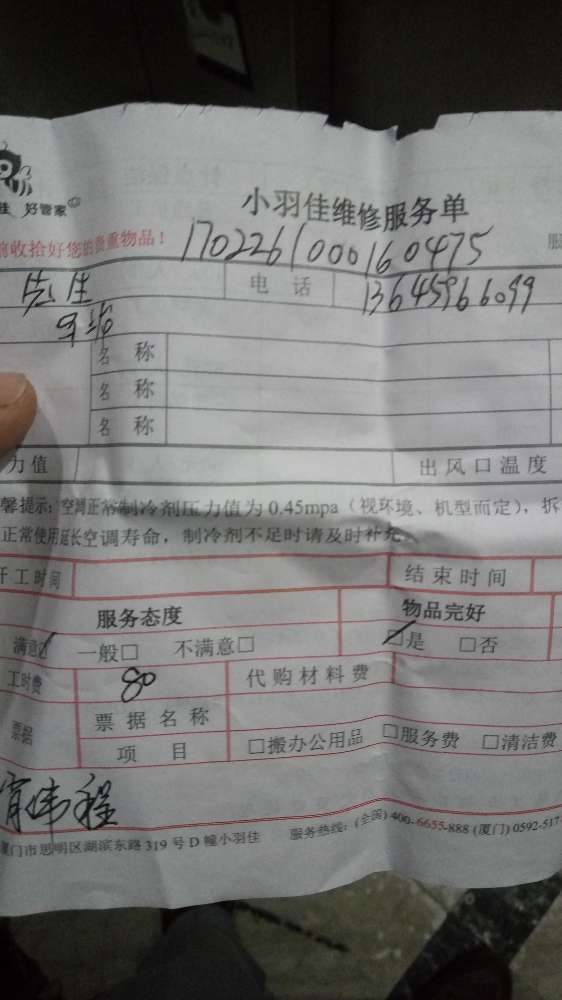 佳 好管家
小羽佳维修服务单
前收拾好您的贵重物品！ 1702261000160475 服
先生 电 话 13645966099
名 称
名 称
名 称
力值 出风口温度
馨提示：空调正常制冷剂压力值为 0.45mpa（视环境、机型而定），拆
正常使用延长空调寿命，制冷剂不足时请及时补充。
开工时间 结束时间
服务态度 物品完好
满意☑ 一般□ 不满意□ ☑是 □否
工时费 80 代购材料费
票据 票据名称
项 目 □搬办公用品 □服务费 □清洁费
厦门市思明区湖滨东路 319 号 D 幢小羽佳 服务热线：(全国) 400-6655-888 (厦门) 0592-517